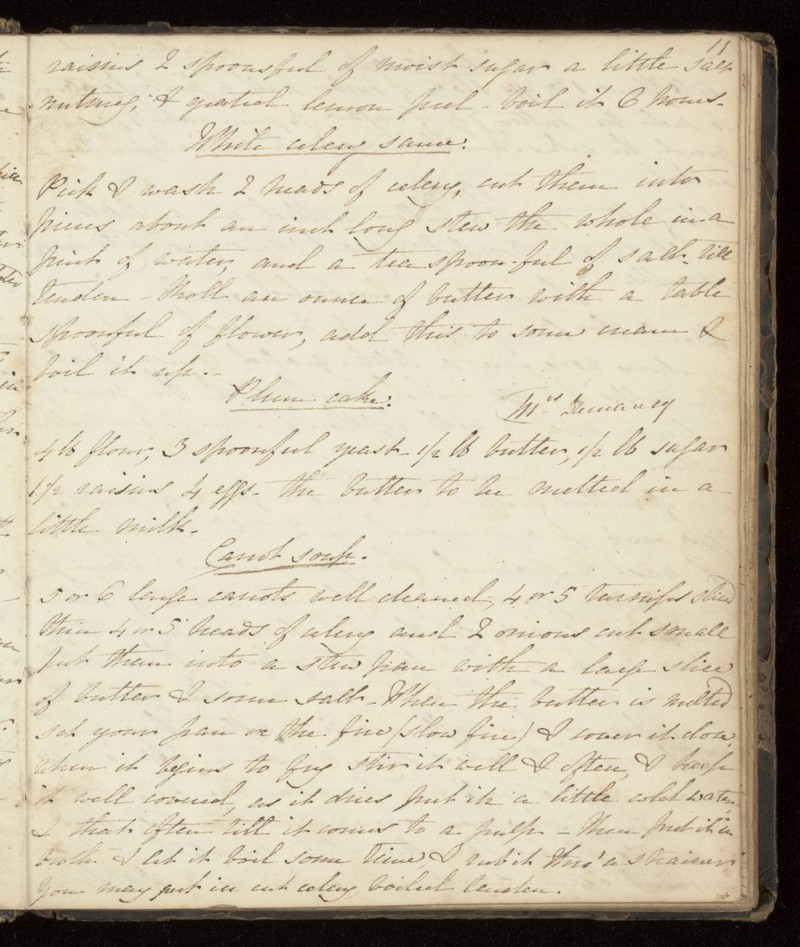 11
raisins 2 spoonsful of moist sugar a little salt
nutmeg, & grated lemon peel - boil it 6 hours -
White celery sauce.
Pick & wash 2 heads of celery, cut them into
pieces about an inch long stew the whole in a
pint of water, and a tea spoon-ful of salt, till
tender - Roll an ounce of butter with a table
spoonful of flower, add this to some cream &
boil it up. -
Plum cake. Mrs
4 lb flour, 3 spoonful yeast - 1/2 lb butter, 1/2 lb sugar
1 1/2 raisins 4 eggs - the butter to be melted in a
little milk -
Carrot soup.
5 or 6 large carrots well cleaned, 4 or 5 turnips sliced
thin 4 or 5 heads of celery and 2 onions cut small
put them into a stew pan with a large slice
of butter & some salt - When the butter is melted
set your pan on the fire (slow fire) & cover it close
when it begins to fry stir it well & often, & keep
it well covered, as it dries put in a little cold water
& that often till it comes to a pulp - then put it in
broth & let it boil some time & rub it thro' a strainer
you may put in cut celery boiled tender.